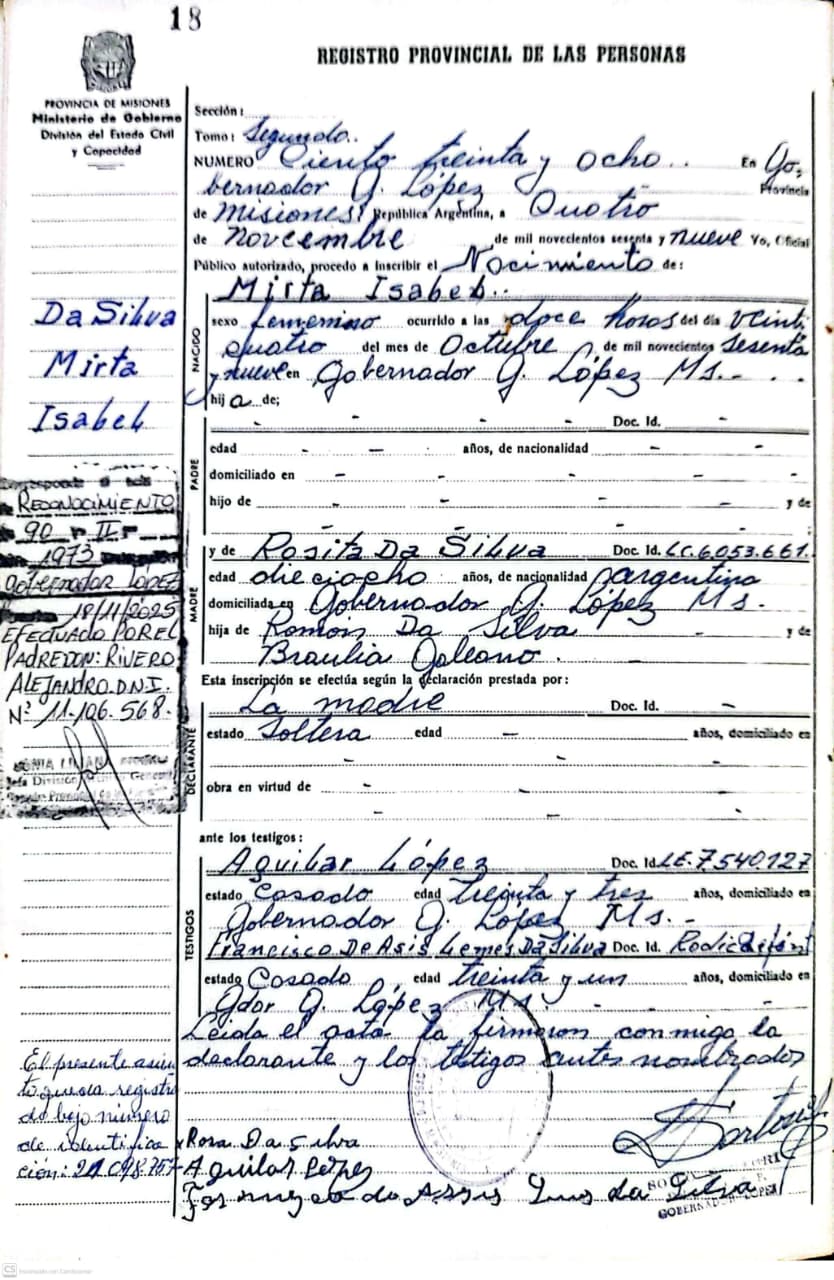 18
REGISTRO PROVINCIAL DE LAS PERSONAS
PROVINCIA DE MISIONES
Ministerio de Gobierno
División del Estado Civil
y Capacidad
Sección:
Tomo: Segundo..
NUMERO Ciento treinta y ocho.. En Go-
bernador G. López Provincia
de Misiones; República Argentina, a Cuatro
de Noviembre de mil novecientos sesenta y nueve Yo, Oficial
Público autorizado, procedo a inscribir el Nacimiento de:
Mirta Isabel..
NACIDO
sexo femenino ocurrido a las doce horas del día veinti
cuatro del mes de Octubre de mil novecientos sesenta
y nueve en Gobernador G. López Ms.-
hija de;
Da Silva
Mirta
Isabel
PADRE
- - - - Doc. Id. -
edad - - años, de nacionalidad - -
domiciliado en - - - -
hijo de - - - y de
MADRE
y de Rosita Da Silva Doc. Id. LC.6.053.661.
edad dieciocho años, de nacionalidad argentina
domiciliada en Gobernador G. López Ms.
hija de Ramón Da Silva - y de
Braulia Galeano. -
Esta inscripción se efectúa según la declaración prestada por:
DECLARANTE
La madre Doc. Id. -
estado Soltera edad - años, domiciliado en
obra en virtud de -
RECONOCIMIENTO
90 II
1973
Gobernador López
18/11/2025
EFECTUADO POR EL
PADRE DON: RIVERO
ALEJANDRO D.N.I.
Nº 11.106.568.
ante los testigos:
TESTIGOS
Aguilar López Doc. Id. LE.7.540.127
estado Casado edad treinta y tres años, domiciliado en
Gobernador G. López Ms.-
Francisco De Asis Lemes Da Silva Doc. Id.
estado Casado edad treinta y un años, domiciliado en
Gdor G. López Ms. - -
Leida el acta la firmaron conmigo la
declarante y los testigos antes nombrados
El presente asien
to queda registra
do bajo número
de identifica
ción: 21.098.757
Rosa Da silva
Aguilar López
da Silva
GOBERNADOR LOPEZ
CS Escaneado con CamScanner